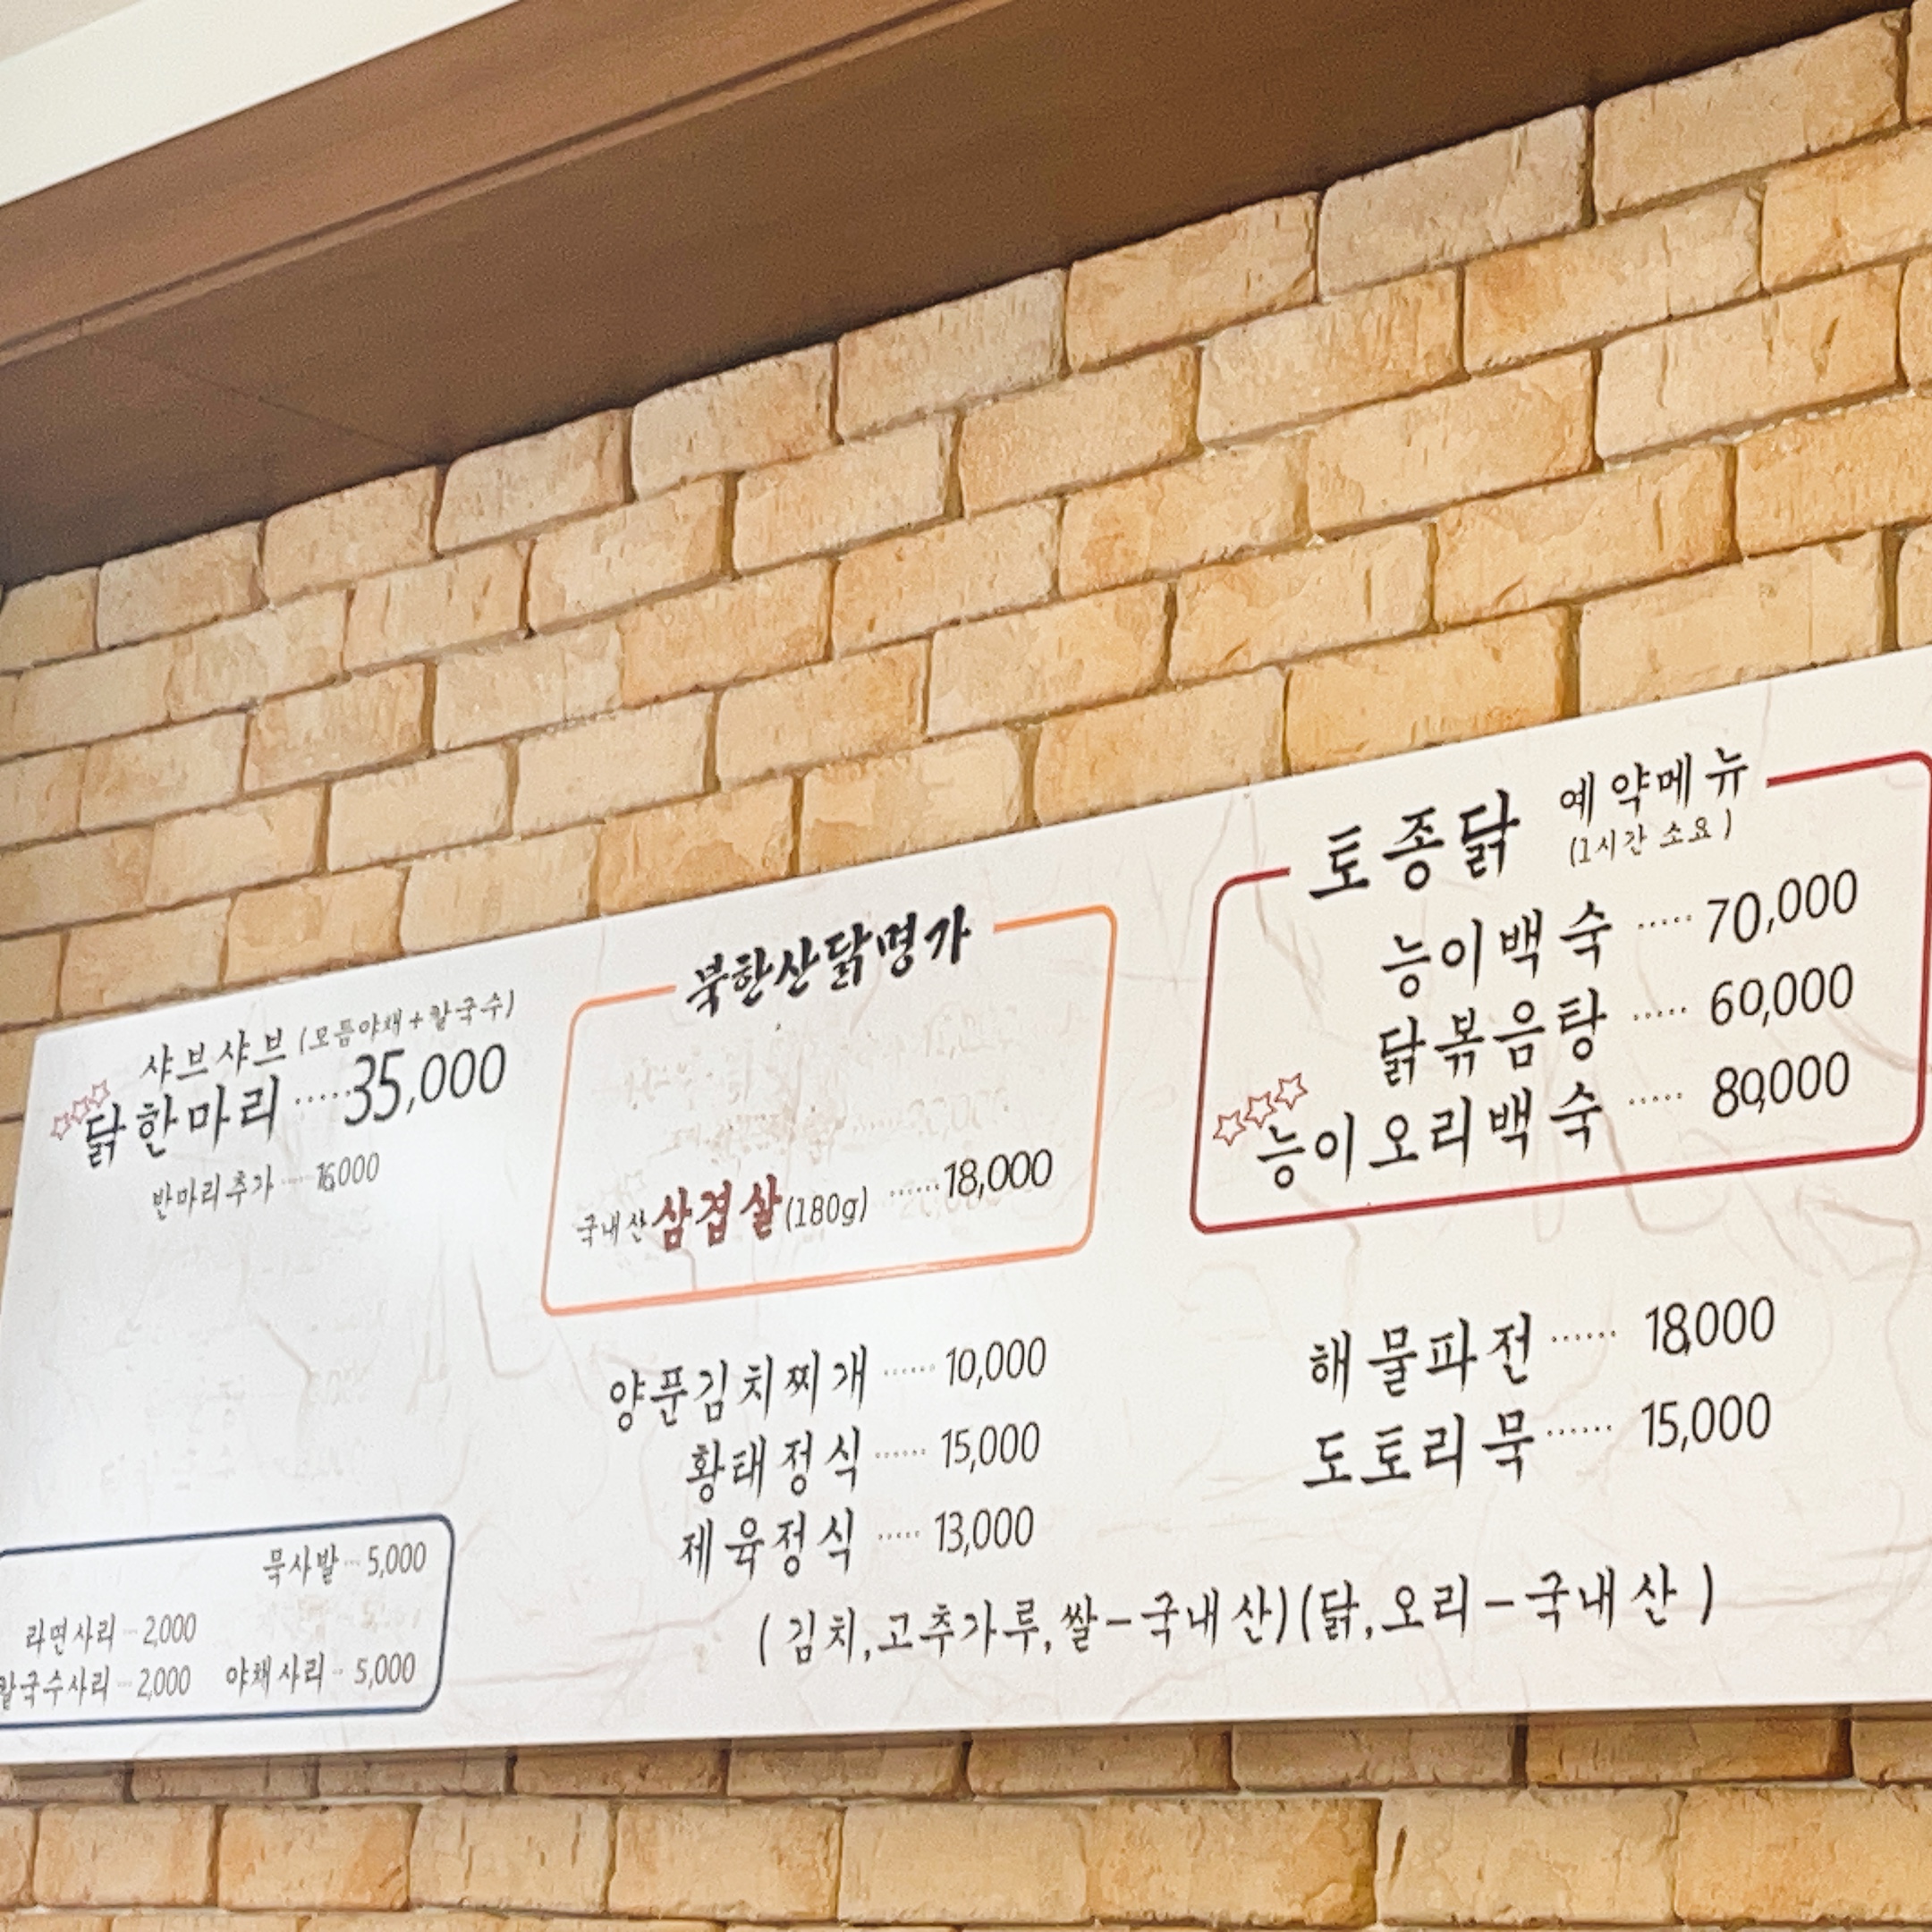 샤브샤브 (모듬야채+칼국수)
닭한마리 ····· 35,000
반마리추가 ···· 16,000
묵사발 ··· 5,000
라면사리 ··· 2,000
칼국수사리 ··· 2,000 야채사리 ·· 5,000
북한산닭명가
국내산 삼겹살 (180g) ······ 18,000
양푼김치찌개 ······ 10,000
황태정식 ······ 15,000
제육정식 ····· 13,000
토종닭 예약메뉴
(1시간 소요)
능이백숙 ····· 70,000
닭볶음탕 ····· 60,000
능이오리백숙 ····· 80,000
해물파전 ······ 18,000
도토리묵 ······ 15,000
(김치,고추가루,쌀-국내산)(닭,오리-국내산)